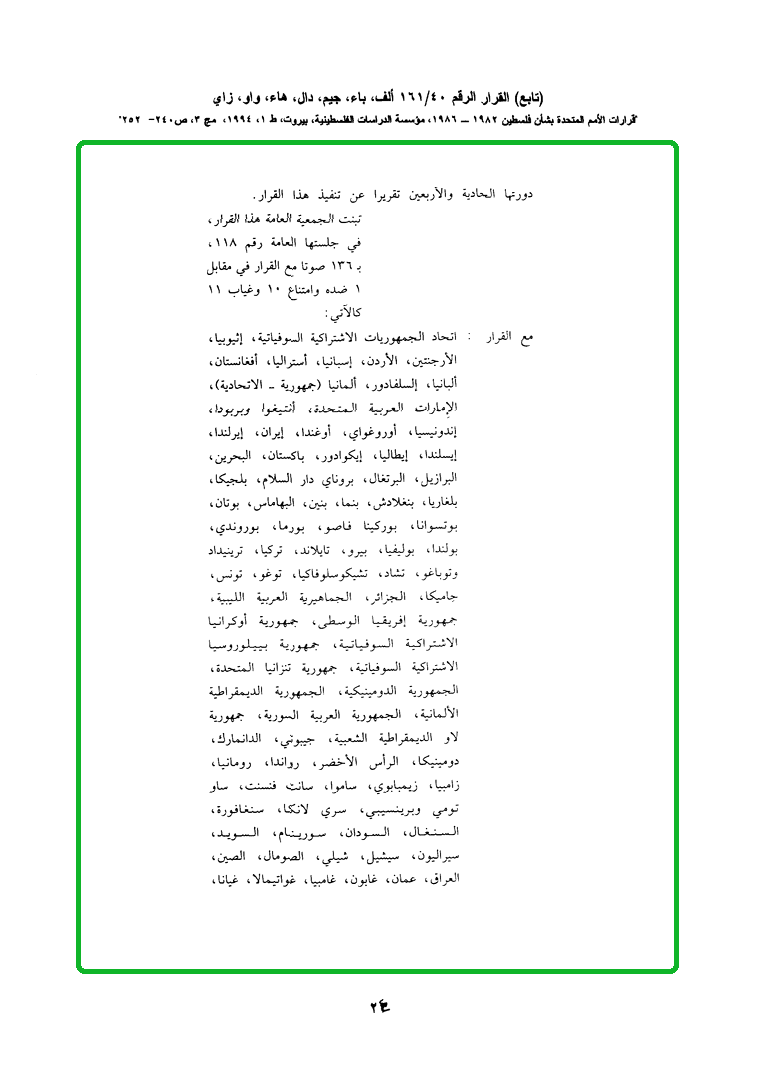 (تابع) القرار الرقم ١٦١/٤٠ ألف، باء، جيم، دال، هاء، واو، زاي
"قرارات الأمم المتحدة بشأن فلسطين ١٩٨٢ – ١٩٨٦، مؤسسة الدراسات الفلسطينية، بيروت، ط ١، ١٩٩٤، مج ٣، ص ٢٤٠- ٢٥٢"
دورتها الحادية والأربعين تقريرا عن تنفيذ هذا القرار.
تبنت الجمعية العامة هذا القرار،
في جلستها العامة رقم ١١٨،
بـ ١٣٦ صوتا مع القرار في مقابل
١ ضده وامتناع ١٠ وغياب ١١
كالآتي:
مع القرار : اتحاد الجمهوريات الاشتراكية السوفياتية، إثيوبيا،
الأرجنتين، الأردن، إسبانيا، أستراليا، أفغانستان،
ألبانيا، إلسلفادور، ألمانيا (جمهورية ـ الاتحادية)،
الإمارات العربية المتحدة، أنتيغوا وبربودا،
إندونيسيا، أوروغواي، أوغندا، إيران، إيرلندا،
إيسلندا، إيطاليا، إيكوادور، باكستان، البحرين،
البرازيل، البرتغال، بروناي دار السلام، بلجيكا،
بلغاريا، بنغلادش، بنما، بنين، البهاماس، بوتان،
بوتسوانا، بوركينا فاصو، بورما، بوروندي،
بولندا، بوليفيا، بيرو، تايلاند، تركيا، ترينيداد
وتوباغو، تشاد، تشيكوسلوفاكيا، توغو، تونس،
جاميكا، الجزائر، الجماهيرية العربية الليبية،
جمهورية إفريقيا الوسطى، جمهورية أوكرانيا
الاشتراكية السوفياتية، جمهورية بييلوروسيا
الاشتراكية السوفياتية، جمهورية تنزانيا المتحدة،
الجمهورية الدومينيكية، الجمهورية الديمقراطية
الألمانية، الجمهورية العربية السورية، جمهورية
لاو الديمقراطية الشعبية، جيبوتي، الدانمارك،
دومينيكا، الرأس الأخضر، رواندا، رومانيا،
زامبيا، زيمبابوي، ساموا، سانت فنسنت، ساو
تومي وبرينسيبي، سري لانكا، سنغافورة،
السنغال، السودان، سورينام، السويد،
سيراليون، سيشيل، شيلي، الصومال، الصين،
العراق، عمان، غابون، غامبيا، غواتيمالا، غيانا،